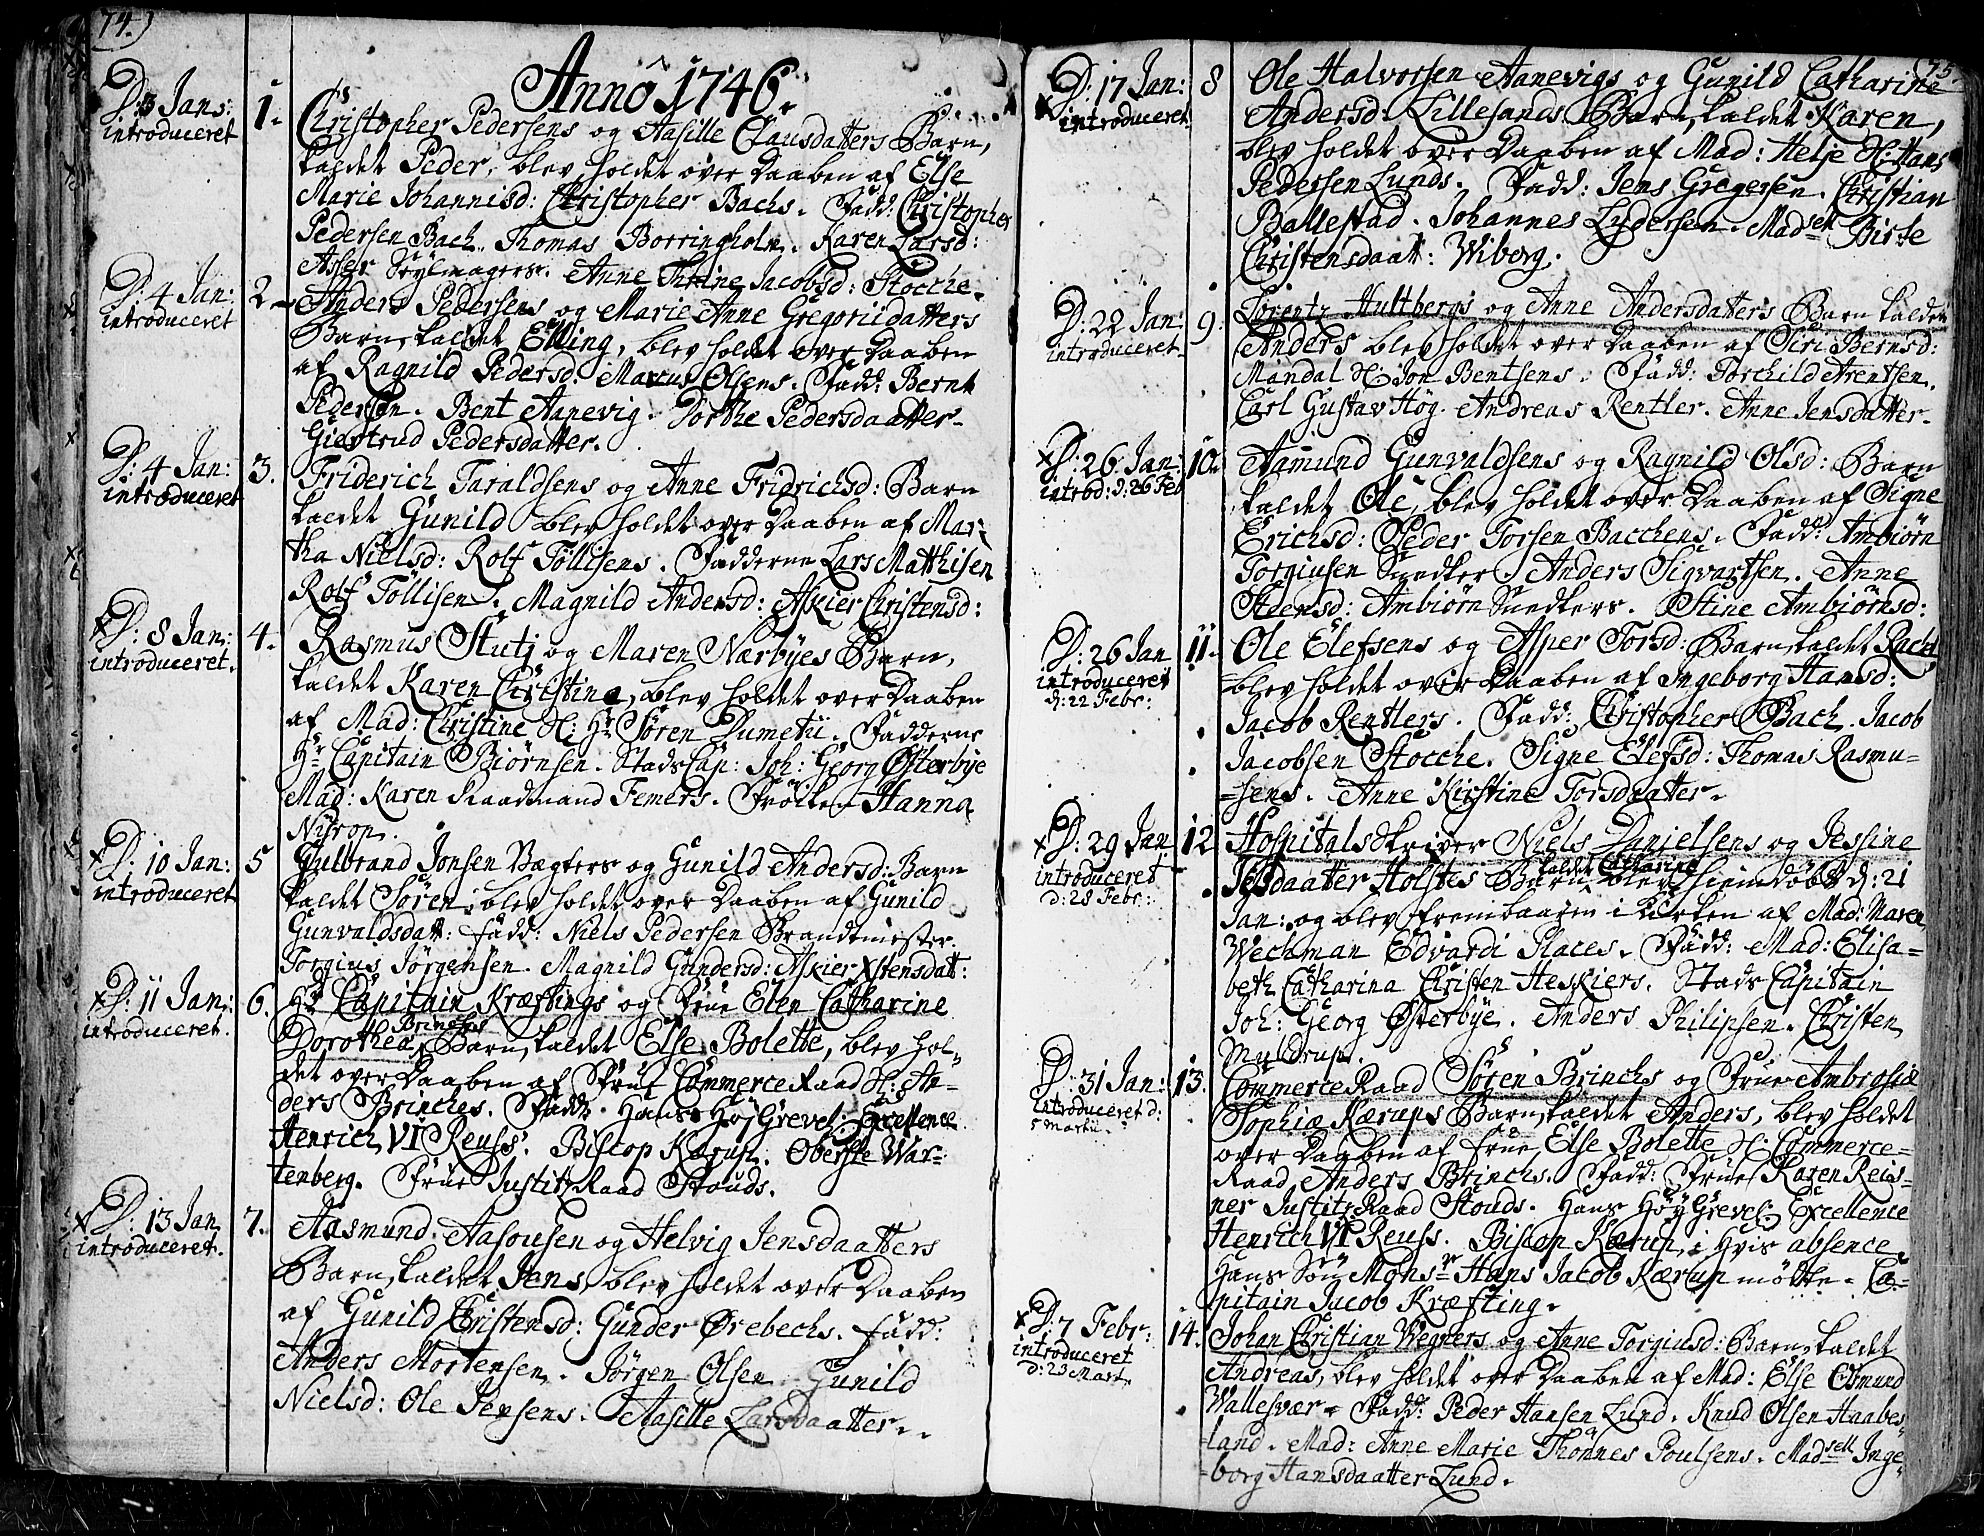 74.
Anno 1746.
D: 3 Jan:
introduceret
1.
Christopher Pedersens og Aasille Clausdatters Barn,
kaldet Peder, blev holdet over Daaben af Else
Marie Johannisd: Christopher Bachs. Fadd: Christopher
Pedersen Bach. Thomas Borringholm. Karen Larsd:
Asser Seylmagers. Anne Thrine Jacobsd: Stocche.
D: 4 Jan:
introduceret
2
Anders Pedersens og Marie Anne Gregoriidatters
Barn, kaldet Elling, blev holdet over Daaben
af Ragnild Pedersd. Marcus Olsens. Fadd: Bernt
Pedersen. Bent Aanevig. Dorthe Pedersdaatter.
Giertrud Pedersdatter.
D: 4 Jan:
introduceret
3.
Friderich Taraldsens og Anne Fridrichsd: Barn
kaldet Gunild blev holdet over Daaben af Mar-
tha Nielsd: Rolf Töllisens. Fadderne Lars Matthisen
Rolf Töllisen. Magnild Andersd: Askier Christensd:
D: 8 Jan:
introduceret.
4.
Rasmus Stutj og Maren Nærbyes Barn,
kaldet Karen Christine, blev holdet over Daaben
af Mad: Christine H: Hr Sören Dumetii. Fadderne
Hr Capitain Biörnsen. Stads Cap: Joh: Georg Østerbye
Mad: Karen Raadmand Femers. Fröiken Hanna
Nyrop.
D: 10 Jan:
introduceret
5
Gulbrand Jonsen Vægters og Gunild Andersd: Barn
kaldet Sören, blev holdet over Daaben af Gunild
Gunvaldsdatt: Fadd: Niels Pedersen Brandtmester.
Torgius Jörgensen. Magnild Gundersd: Askier Xstensdat:
D: 11 Jan:
introduceret.
6.
Hr Capitain Kræftings og Frue Elen Catharine
Brinches
Dorothea Barn, kaldet Else Bolette, blev hol-
det over Daaben af Frue Commerce Raad H: An-
ders Brinches. Fadd: Hans Höy Grevel: Excellence
Henrich VI Reuss. Biscop Kærup. Oberste War-
tenberg. Frue Justitz Raad Stouds.
D: 13 Jan
introduceret.
7.
Aasmund Aasousen og Helvig Jensdaatters
Barn, kaldet Jens, blev holdet over Daaben
af Gunild Christensd: Gunder Ørebechs. Fadd:
Anders Mortensen. Jörgen Olsen. Gunild
Nielsd: Ole Jensens. Aasille Larsdaatter.
75
D: 17 Jan:
introduceret
8
Ole Halvorsen Aanevigs og Gunild Catharine
Andersd: Lillesands Barn, kaldet Karen,
blev holdet over Daaben af Mad: Helje H: Hans
Pedersen Lunds. Fadd: Jens Gregersen. Christian
Ballestad. Johannes Lydersen. Madsell Birte
Christensdaatt: Wiborg.
D: 22 Jan:
introduceret
9.
Lorentz Hultbergs og Anne Andersdatters Barn kaldet
Anders blev holdet over Daaben af Siri Bernsd:
Mandal H: Jon Bentsens. Fadd: Torchild Arentsen.
Carl Gustav Hög. Andreas Rentler. Anne Jensdatter.
D: 26 Jan:
introd: d: 26 Feb
10.
Aamund Gunvaldsens og Ragnild Olsd: Barn
kaldet Ole, blev holdet over Daaben af Signe
Erichsd: Peder Torsen Bacchens. Fadd: Ambiörn
Torgiusen Snedker. Anders Sigvartsen. Anne
Stensd: Ambiörn Snedkers. Stine Ambiörnsd:
D: 26 Jan
introduceret
d: 22 Febr:
11.
Ole Elefsens og Asper Torsd: Barn, kaldet Rachel
blev holdet over Daaben af Ingeborg Hansd:
Jacob Rentlers. Fadd: Christopher Bach. Jacob
Jacobsen Stocche. Signe Elefsd: Thomas Rasmu-
sens. Anne Kirstine Torsdaatter.
D: 29 Jan
introduceret
d: 28 Febr:
12
Hospitalsskriver Niels Danielsens og Jessine
kaldet Catharine
Jessdaatter Holstes Barn, blev hiemdöbt d: 21
Jan: og blev frembaaren i Kirken af Mad: Maren
Wechman Edvardi Places. Fadd: Mad: Elisa-
beth Catharina Christen Heskiers. Stads Capitain
Joh: Georg Østerbye. Anders Philipsen. Christen
Muldrup.
D: 31 Jan:
introduceret d:
5 Martii.
13.
Commerce Raad Sören Brinchs og Frue Ambrosia
Sophia Kærups Barn, kaldet Anders, blev holdet
over Daaben af Frue Else Bolette H: Commerce-
Raad Anders Brinchs. Fadd: Frue Karen Reis-
ner Justitz Raad Stouds. Hans Höy Grevel: Excellence
Henrich VI Reuss. Biscop Kærup, i hvis absence
Hans Sön Monsr Hans Jacob Kærup mötte. Ca-
pitain Jacob Kræfting.
D: 7 Febr:
introduceret
d: 23 Mart.
14.
Johan Christian Wegners og Anne Torgiusd: Barn, kaldet
Andreas, blev holdet over Daaben af Mad: Else Osmund
Wallesvær. Fadd: Peder Hansen Lund. Knud Olsen Haabes-
land. Mad: Anne Marie Thönnes Poulsens. Madsell Inge-
borg Hansdaatter Lund.